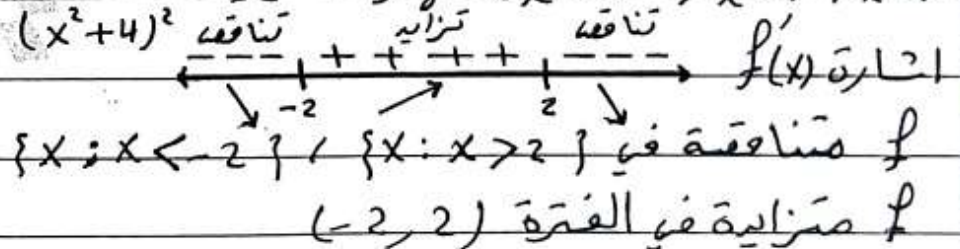 (x²+4)²
تناقص تزايد تناقص
- - - + + + + - - - -
اشارة f'(x)
-2 2
f متناقصة في {x : x > 2} , {x : x < -2}
f متزايدة في الفترة (-2, 2)